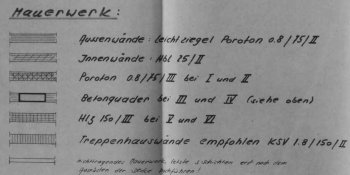 Mauerwerk:
Aussenwände: Leichtziegel Poroton 0.8/75/II
Innenwände: Hbl 25/II
Poroton 0.8/75/III bei I und II
Betonquader bei III und IV (siehe oben)
Hlz 150/III bei V und VI
Treppenhauswände empfohlen KSV 1.8/150/II
Nichttragendes Mauerwerk, letzte 3 Schichten erst nach dem
Ausrüsten der Decke